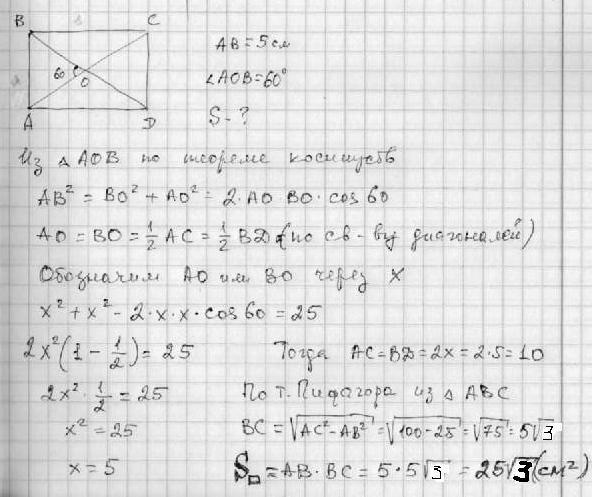 B C
AB = 5 см
60 O
∠AOB = 60°
S - ?
A D
Из △ AOB по теореме косинусов
AB² = BO² + AO² = 2·AO BO·cos 60
AO = BO = ½ AC = ½ BD (по св-ву диагоналей)
Обозначим AO или BO через x
x² + x² - 2·x·x·cos 60 = 25
2x²(1 - ½) = 25
Тогда AC = BD = 2x = 2·5 = 10
2x²·½ = 25
По т. Пифагора из △ ABC
x² = 25
BC = √(AC² - AB²) = √(100-25) = √75 = 5√3
x = 5
S▭ = AB·BC = 5·5√3 = 25√3 (см²)